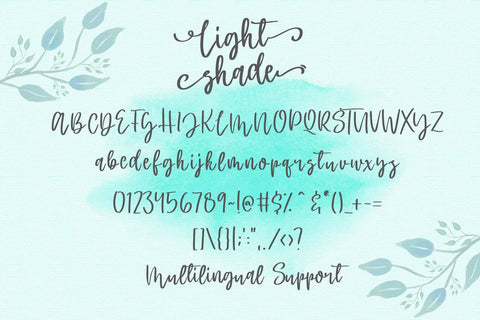 light
shade
ABCDEFGHIJKLMNOPQRSTUVWXYZ
abcdefghijklmnopqrstuvwxyz
0123456789~!@#$%^&*()_+-=
[]\{}|;':",./<>?
Multilingual Support